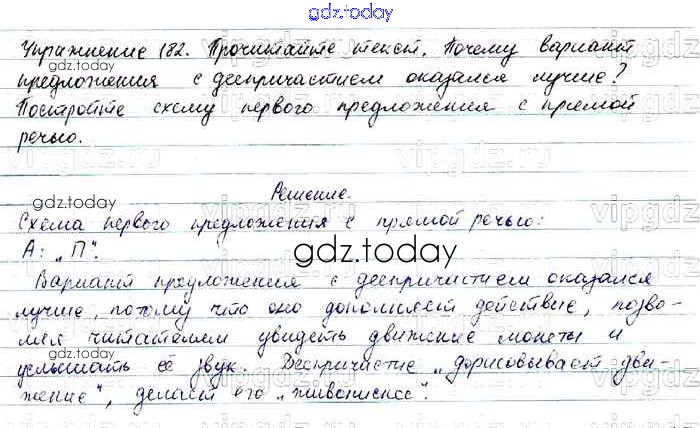 gdz.today
Упражнение 182. Прочитайте текст. Почему вариант
предложения с деепричастием оказался лучше?
Постройте схему первого предложения с прямой
речью.
gdz.today
Решение.
Схема первого предложения с прямой речью:
А: „П“.
gdz.today
Вариант предложения с деепричастием оказался
лучше, потому что оно дополняет действие, позво-
ляя читателям увидеть движение монеты и
gdz.today
услышать её звук. Деепричастие „дорисовывает дви-
жение“, делает его „живописнее“.